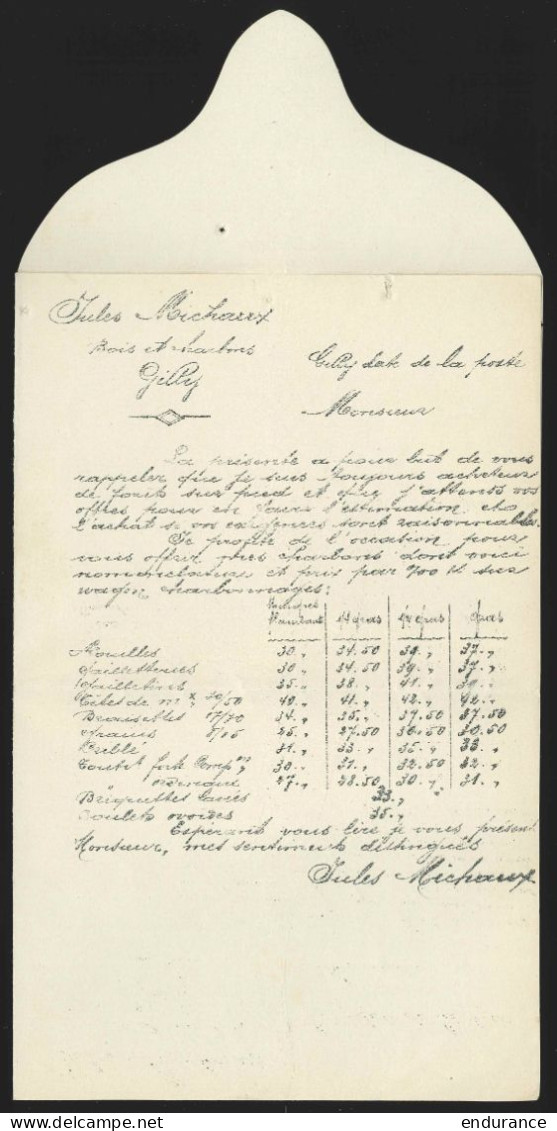 Jules Michaux
Bois et charbons
Gilly
Gilly date de la poste
Monsieur
La présente a pour but de vous
rappeler que je suis toujours acheteur
de sur pied et j'attends vos
offres pour en faire l'estimation et
l'achat si vos exigences sont raisonnables.
Je profite de l'occasion pour
vous offrir mes charbons dont voici
nomenclature et prix par sur
wagon charbonnages:
1/4 gras 1/2 gras gras
Houilles 30 „ 34.50 39. „ 37. „
Gailletteries 30 „ 34.50 39. „ 37. „
Gailletins 35. „ 38. „ 41. „ 39. „
Têtes de mx 30/50 40. „ 41. „ 42. „ 42. „
Braisettes 34. „ 35. „ 37.50 37.50
Grains 25. „ 27.50 30.50 30.50
Criblé 31. „ 33. „ 35. „ 33. „
Toutvt fort Comp 30. „ 31. „ 32.50 32. „
27. „ 28.50 30. „ 31. „
Briquettes 33. „
Boulets ovoïdes 35. „
Espérant vous lire je vous présente
Monsieur, mes sentiments distingués
Jules Michaux
endurance